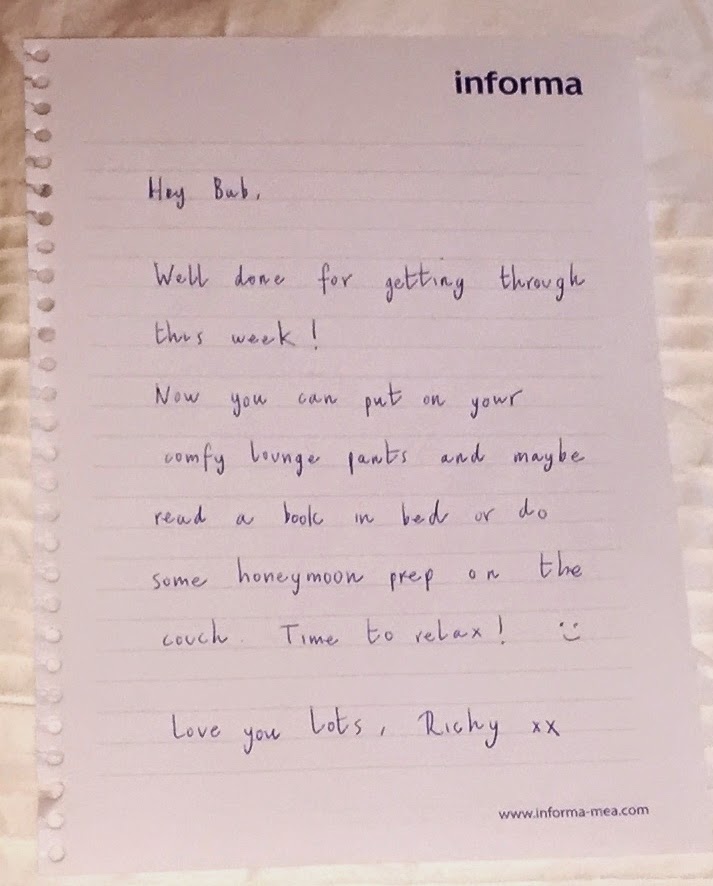 informa
Hey Bub,
Well done for getting through
this week!
Now you can put on your
comfy lounge pants and maybe
read a book in bed or do
some honeymoon prep on the
couch. Time to relax! :)
Love you lots, Richy xx
www.informa-mea.com